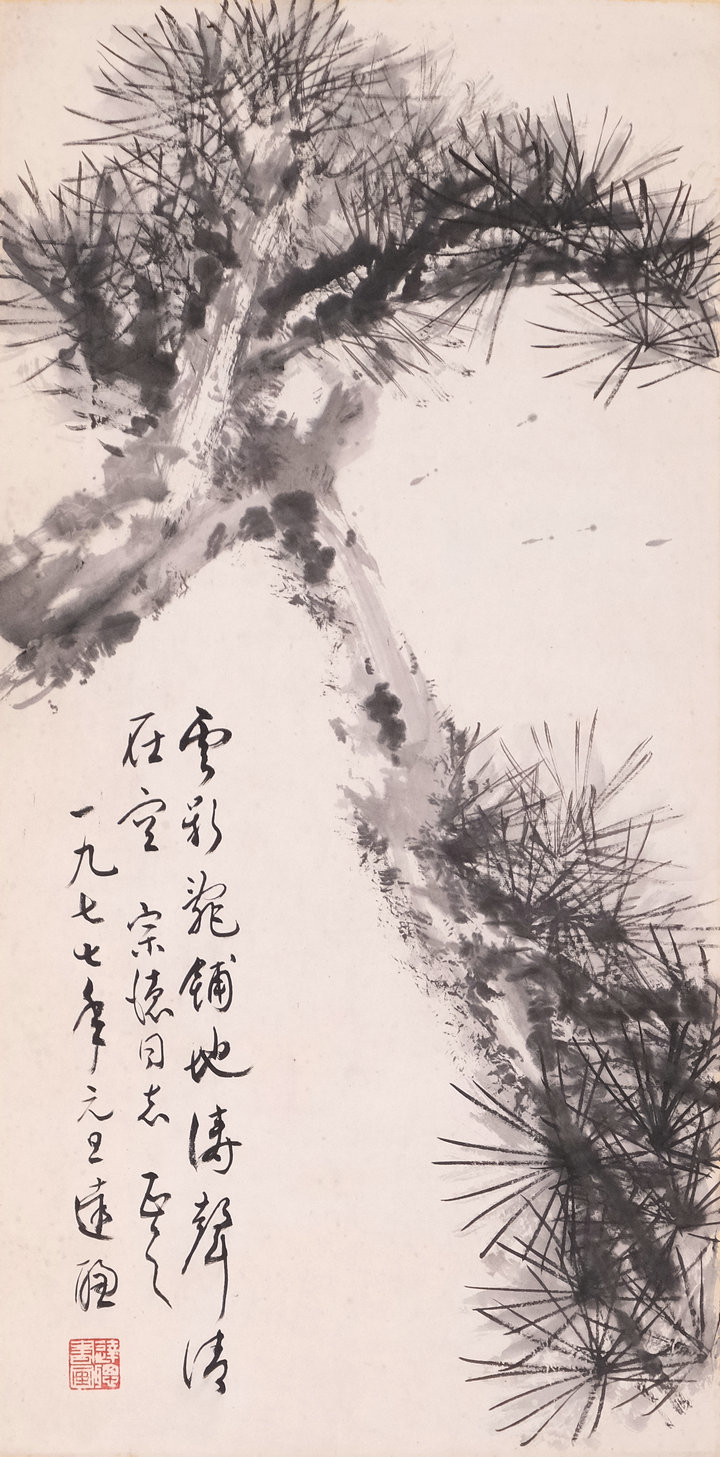 雲影亂鋪地濤聲清
在空 宗德同志 正之
一九七七年元旦達聰